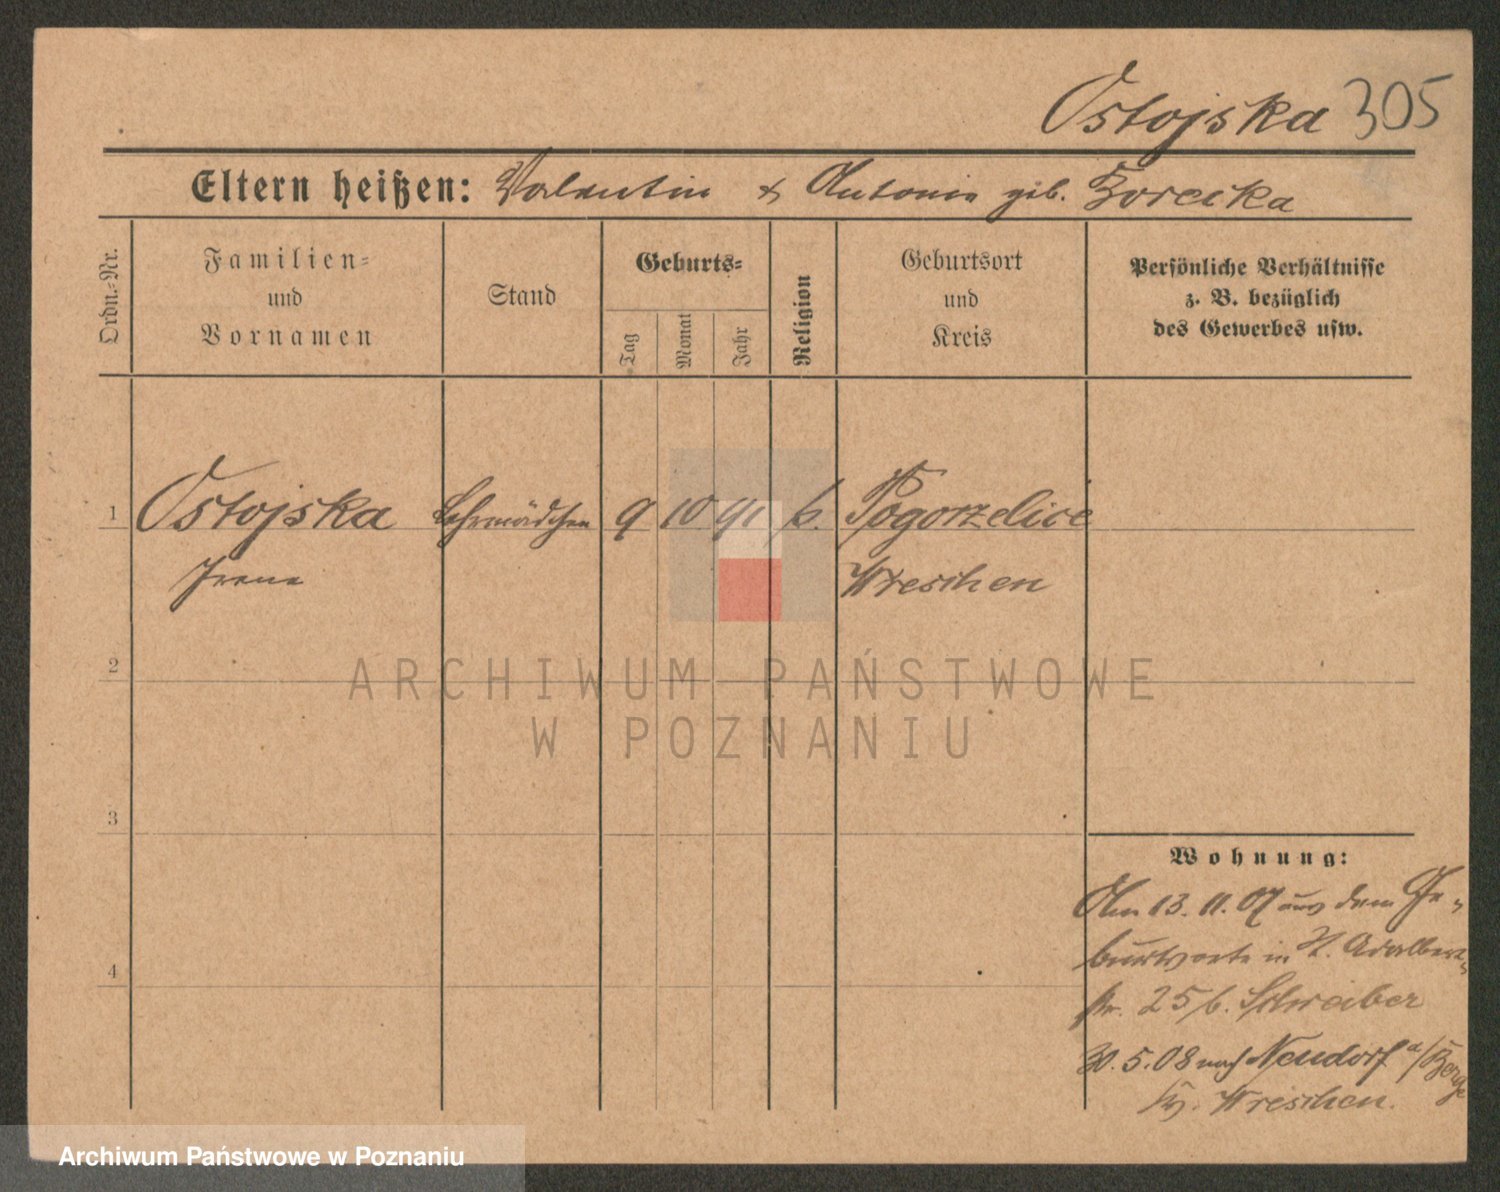 Ostojska 305
Eltern heißen: Valentin & Antonie geb. Borecka
Ordn.-Nr.
Familien-
und
Vornamen
Stand
Geburts-
Tag
Monat
Jahr
Religion
Geburtsort
und
Kreis
Persönliche Verhältnisse
z. B. bezüglich
des Gewerbes usw.
1 Ostojska Lehrmädchen 9 10 91 k. Pogorzelice
Irene Wreschen
2
3
4
Wohnung:
Am 13. 11. 07 aus dem Ge-
burtsorte in St. Adalbert-
str. 25/6. Schreiber
30. 5. 08 nach Neudorf a/Berge
Kr. Wreschen.
ARCHIWUM PAŃSTWOWE
W POZNANIU
Archiwum Państwowe w Poznaniu